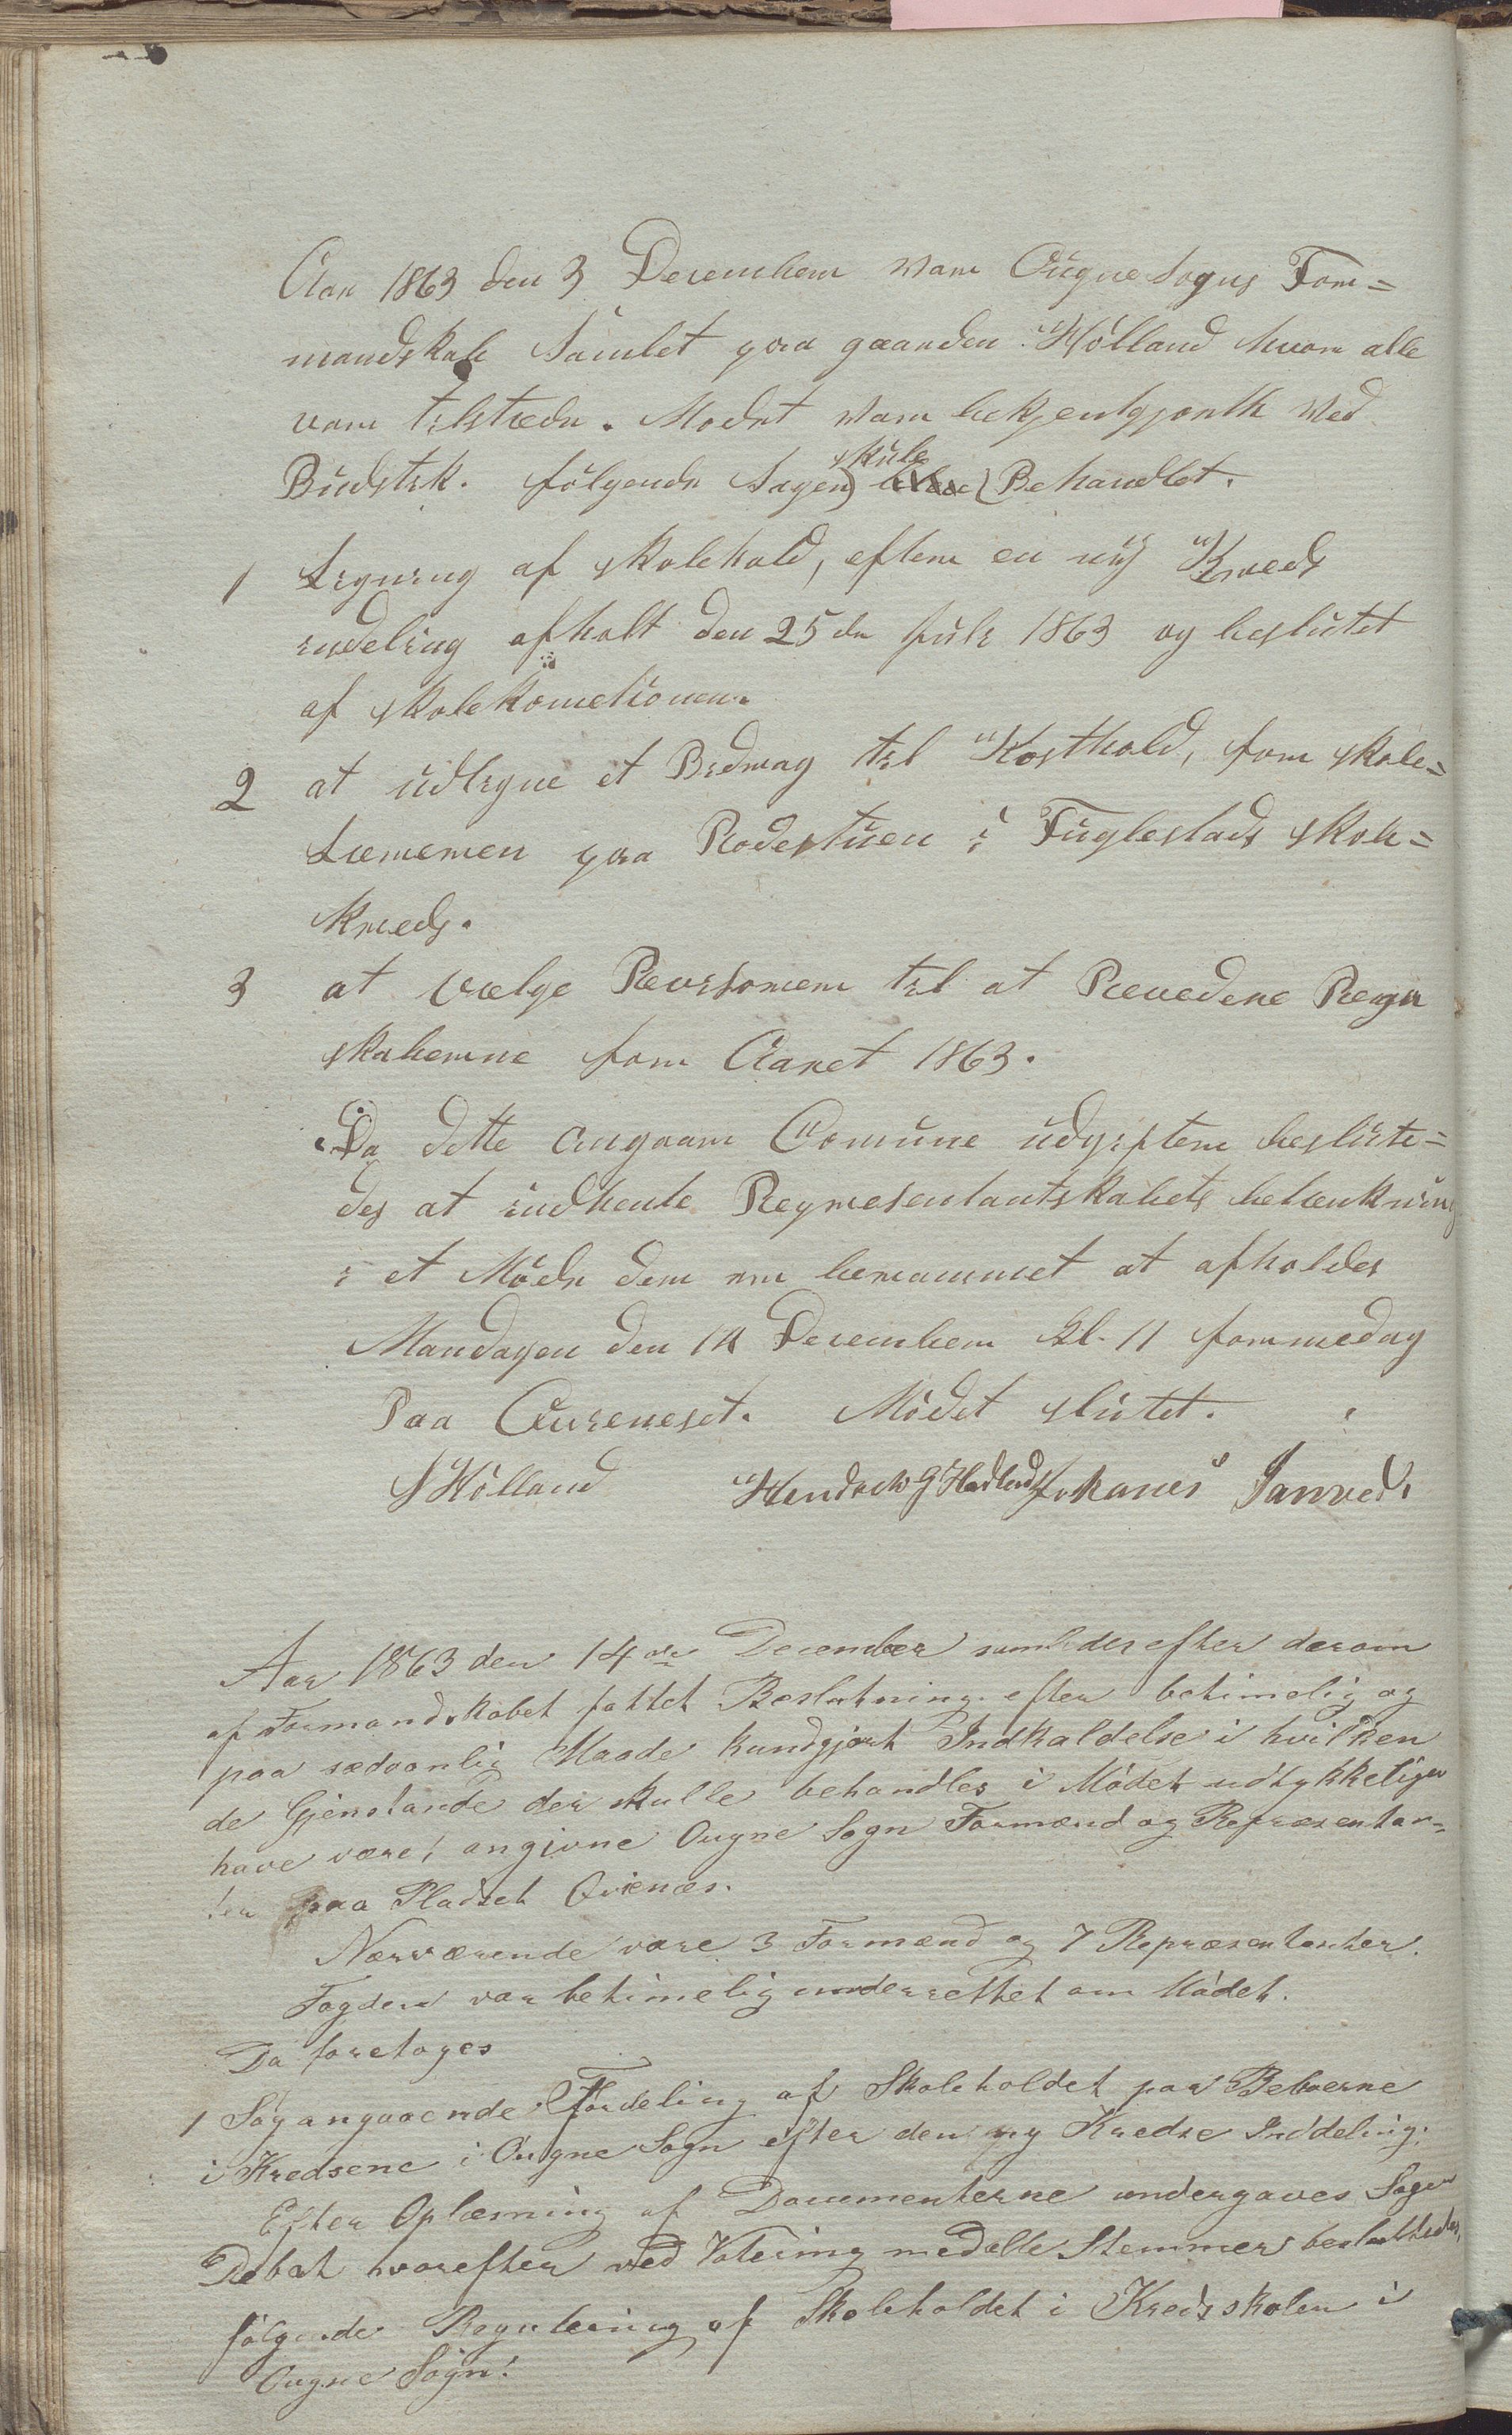 Aar 1863 den 3 December var Ougne Sogns For=
mandskab Samlet paa gaarden Hölland hvor alle
var tilstede. Modet var bekjentgjorth ved
Budstik. følgende Sager skule Behandlet.
1 Ligning af skolehold, efter en nÿ Kreds
indeling afholt den 25de juli 1863 og besluttet
af skolekometionen.
2 at udligne et Bidrag til Kosthold, for skole=
Læreren paa Rodestuen i Fuglestads skole=
kreds.
3 at vælge Revisorer til at Revedere Regn
skaberne for Aaret 1863.
Da dette angaar Comune udgifter beslutte=
des at indhente Representantskabets betænkning
i et Møde der er berammet at afholdes
Mandagen den 14 December Kl. 11 formedag
Paa Qvieneset. Mödet sluttet.
S Hölland Hendrik G Hadland Johanes Sanved.
Aar 1863 den 14de December samledes efter derom
af Formandskabet fattet Beslutning efter betimelig og
paa sædvanlig Maade kundgjort Indkaldelse i hvilken
de Gjenstande der skulle behandles i Mödet udtykkeligen
have været angivne Ougne Sogn Formænd og Repræsentan=
ter paa Pladset Qvienæs.
Nærværende vare 3 Formænd og 7 Repræsentanter.
Fogden var betimelig underrettet om Mödet.
Da foretages
1 Sag angaaende Fordeling af Skoleholdet paa Beboerne
i Kredsene i Ougne Sogn efter den ny Kredse Inddeling.
Efter Oplæsning af Documenterne undergaves Sagen
Debat hvorefter ved Votering med alle Stemmer besluttedes
fölgende Regulering af Skoleholdet i Kredsskolen i
Ougne Sogn: